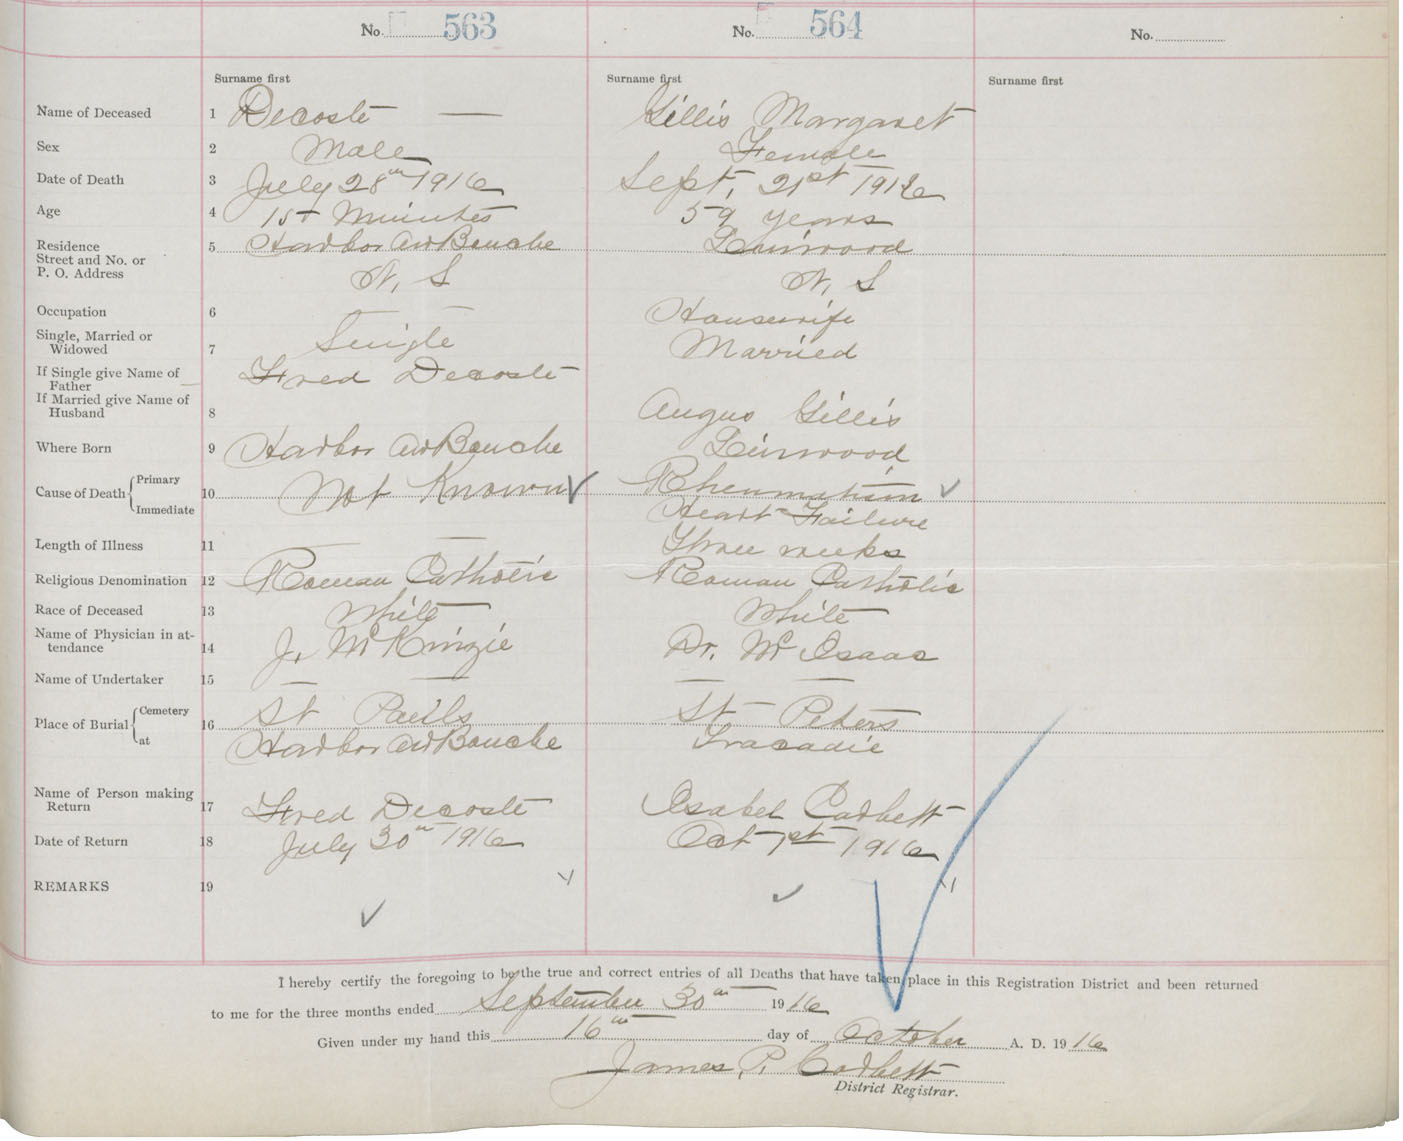 No. 563 No. 564 No.
Surname first Surname first Surname first
Name of Deceased 1 Decoste — Gillis Margaret
Sex 2 Male Female
Date of Death 3 July 28th 1916 Sept, 21st 1916
Age 4 15 Minutes 59 years
Residence 5 Harbor Au Bouche Linwood
Street and No. or
P. O. Address N, S N, S
Occupation 6 — Housewife
Single, Married or
Widowed 7 Single Married
If Single give Name of Fred Decoste
Father —
If Married give Name of
Husband 8 Angus Gillis
Where Born 9 Harbor Au Bouche Linwood
Cause of Death { Primary 10 Not Known Rheumatism
Immediate Heart Failure
Length of Illness 11 — — Three weeks
Religious Denomination 12 Roman Catholic Roman Catholic
Race of Deceased 13 White White
Name of Physician in at-
tendance 14 J. McKinzie Dr. McIsaac
Name of Undertaker 15 — — — —
Place of Burial { Cemetery 16 St Pauls St Peters
at Harbor Au Bouche Tracadie
Name of Person making
Return 17 Fred Decoste Isabel Corbett
Date of Return 18 July 30th 1916 Oct 1st 1916
REMARKS 19
I hereby certify the foregoing to be the true and correct entries of all Deaths that have taken place in this Registration District and been returned
to me for the three months ended September 30th 1916
Given under my hand this 16th day of October A. D. 1916
James, P. Corbett
District Registrar.